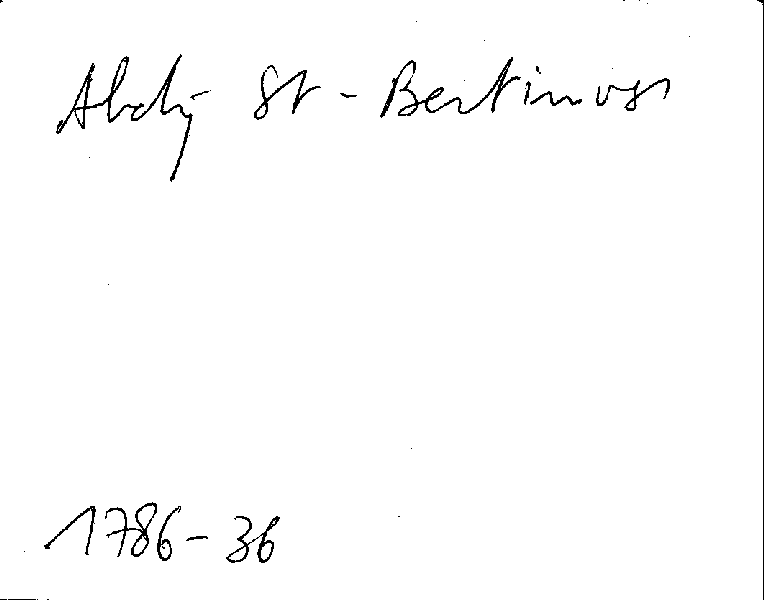 Abdij St-Bertinus
1786-36